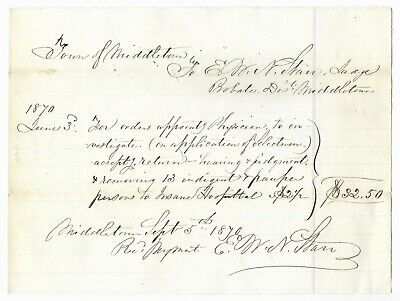 Town of Middletown
To E. W. N. Starr, Judge
Probate, Dist. Middletown
1870
June 3d. For orders appointg Physician, to in-
vestigate, (on application of selectmen,
acceptg return - hearing & judgment
& removing 13 indigent & pauper
persons to Insane Hospital @ $2½
$32.50
Middletown Sept 5th 1870
Recd Payment E. W. N. Starr